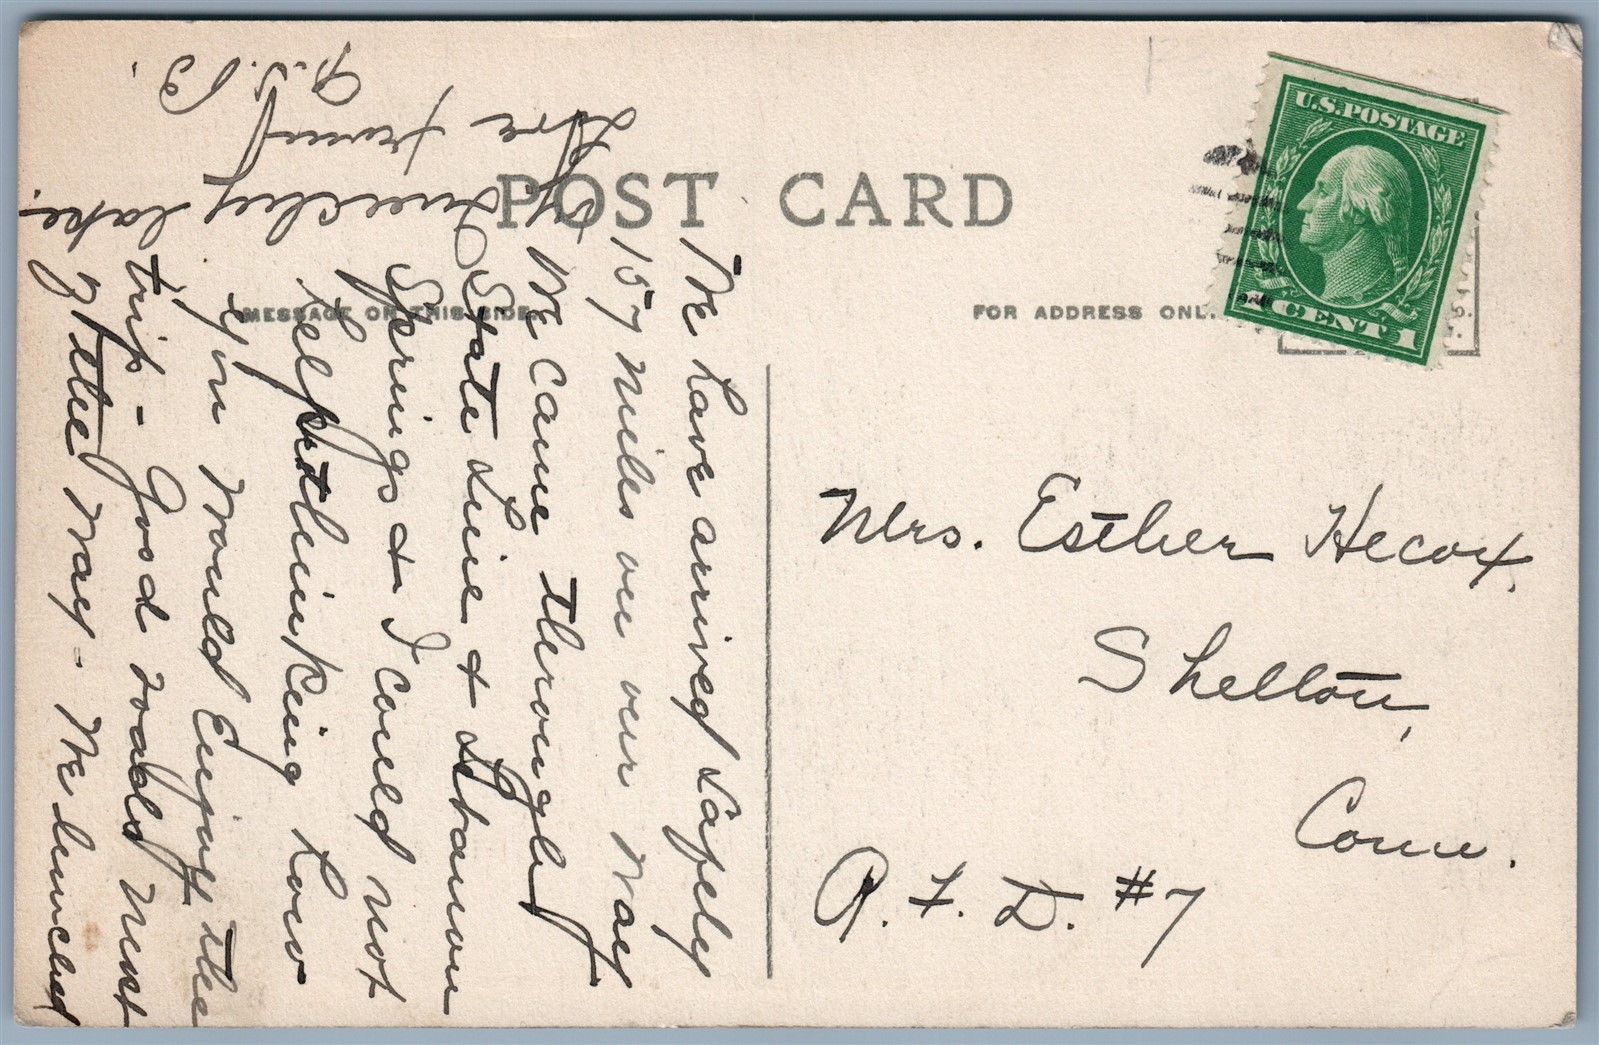 POST CARD
MESSAGE ON THIS SIDE
FOR ADDRESS ONLY
U.S. POSTAGE
1 CENT 1
We have arrived safely
157 miles on our way
We came through
State Line & Lebanon
Springs & I could not
help thinking how
you would Enjoy the
trip - Good roads most
of the way - We lunched
by lake.
Love from
Mrs. Esther Hecox,
Shelton,
Conn.
R. F. D. #7